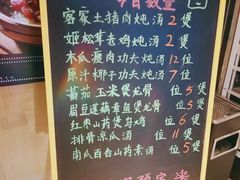 今日数量
客家土猪肉炖汤 2煲
姬松茸老鸡炖汤 2煲
木瓜瘦肉功夫炖汤 12位
原汁椰子功夫炖汤 7位
番茄玉米煲龙骨 位 5煲
眉豆莲藕章鱼煲龙骨 位 5煲
红枣山药煲乌鸡 位 6煲
排骨凉瓜汤 位 11煲
南瓜百合山药素汤 位 5煲